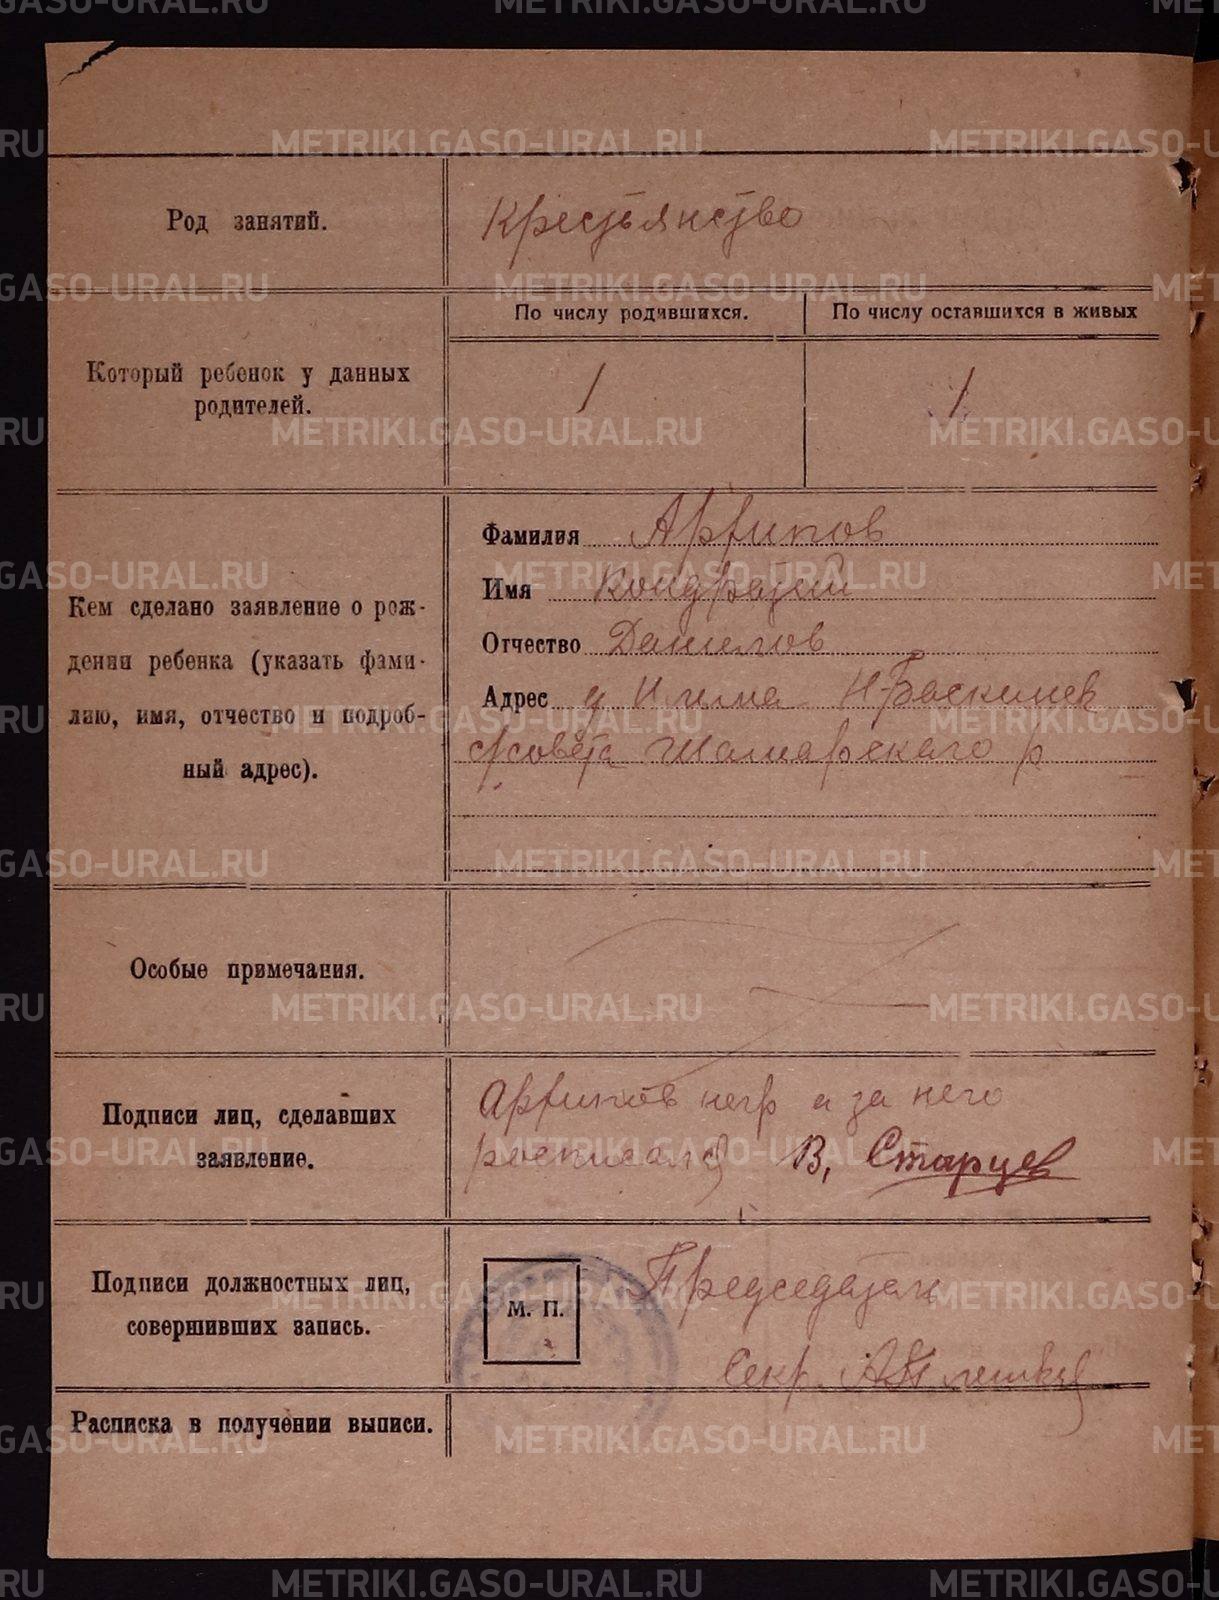 Род занятий.
Крестьянство
Который ребенок у данных
родителей.
По числу родившихся.
По числу оставшихся в живых
1
1
Кем сделано заявление о рож-
дении ребенка (указать фами-
лию, имя, отчество и подроб-
ный адрес).
Фамилия Арфипов
Имя Кондратий
Отчество Данилов
Адрес
с/совета Шамарского р
Особые примечания.
Подписи лиц, сделавших
заявление.
Арфипов негр а за него
росписался В, Старцев
Подписи должностных лиц,
совершивших запись.
М. П.
Председатель
Секр.
Расписка в получении выписи.
METRIKI.GASO-URAL.RU